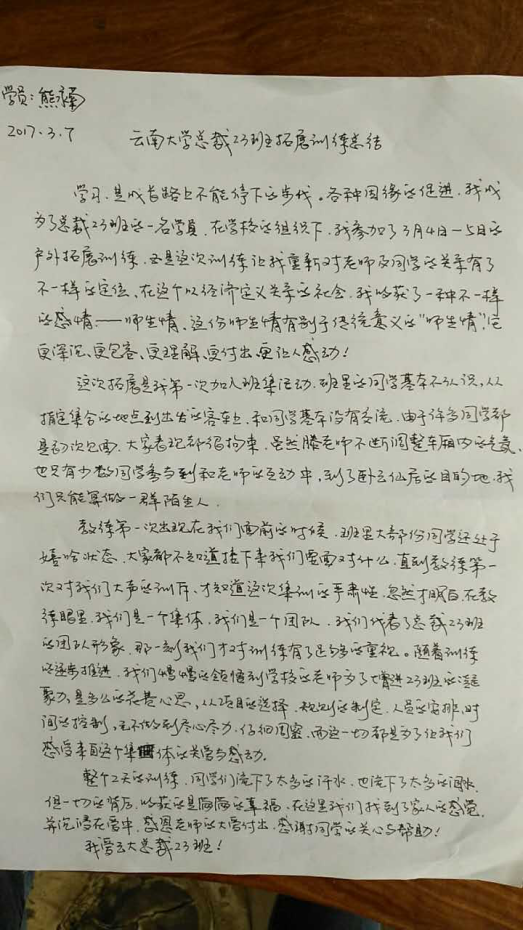 学员:熊
2017.3.7 云南大学总裁23班拓展训练总结
学习,是成长路上不能停下的步伐。各种因缘的促进,我成
为了总裁23班的一名学员,在学校的组织下,我参加了3月4日—5日的
户外拓展训练,也是这次训练让我重新对老师及同学的关系有了
不一样的定位,在这个以经济定义关系的社会,我收获了一种不一样
的感情:——师生情,这份师生情有别于传统意义的"师生情",它
更深沉、更包容、更理解、更付出、更让人感动!
这次拓展是我第一次加入班集活动,班里的同学基本不认识,从
指定集合的地点到出发的客车上,和同学基本没有交流,由于许多同学都
是初次见面,大家表现都很拘束,虽然滕老师不断调整车厢内的气氛,
也只有少数同学参与到和老师的互动中,到了卧云仙居的目的地,我
们只能算做一群陌生人。
教练第一次出现在我们面前的时候,班里大部份同学还处于
嬉哈状态,大家都不知道接下来我们要面对什么,直到教练第一
次对我们大声的训斥,才知道这次集训的严肃性,忽然才明白,在教
练眼里,我们是一个集体,我们是一个团队,我们代表了总裁23班
的团队形象,那一刻我们才对训练有了足够的重视。随着训练
的逐步推进,我们慢慢的领悟到学校的老师为了增进23班的凝
聚力,是多么的花费心思,从项目的选择,规则的制定,人员的安排,时
间的控制,无不做到尽心尽力,仔细周密,而这一切都是为了让我们
感受来自这个集体的关爱与感动。
整个2天的训练,同学们流下了太多的汗水,也流下了太多的泪水,
但一切的背后,收获的是满满的幸福,在这里我们找到了家人的感觉,
并沉浸在爱中,感恩老师的大爱付出,感谢同学的关心与帮助!
我爱云大总裁23班!